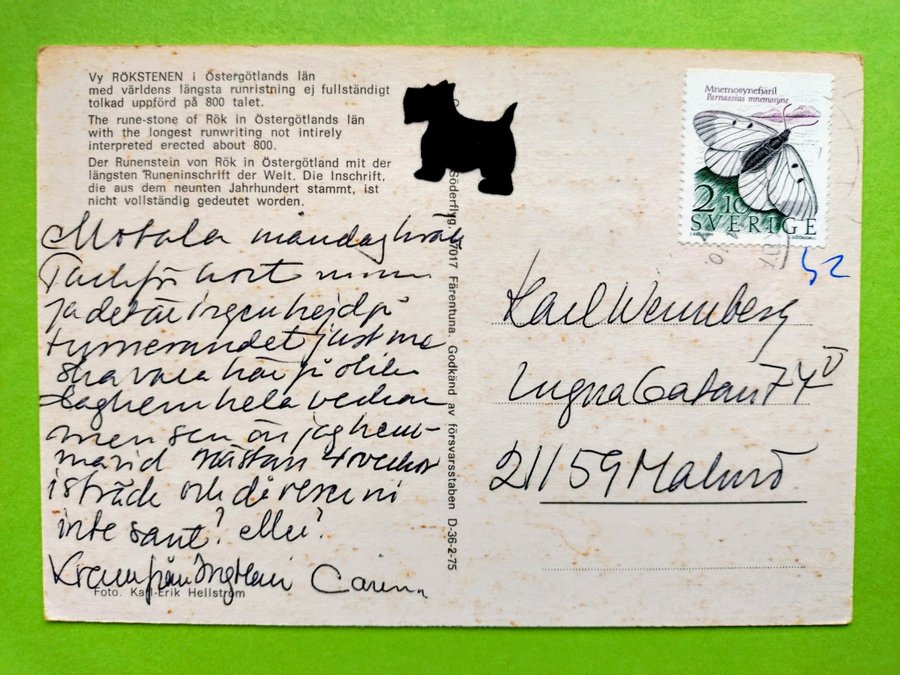 Vy RÖKSTENEN i Östergötlands län
med världens längsta runristning ej fullständigt
tolkad uppförd på 800 talet.
The rune-stone of Rök in Östergötlands län
with the longest runwriting not intirely
interpreted erected about 800.
Der Runenstein von Rök in Östergötland mit der
längsten Runeninschrift der Welt. Die Inschrift,
die aus dem neunten Jahrhundert stammt, ist
nicht vollständig gedeutet worden.
Motala måndag kväll
Tack för kort
ja det är ingen hejd på
turnerandet just nu
ska vara här på olika
daghem hela veckan
men sen är jag hem-
ma nästan 4 veckor
i sträck och då reser ni
inte sant? eller?
Kram från Carin
Foto. Karl-Erik Hellström
Söderflyg, 17017 Färentuna. Godkänd av försvarsstaben D-36-2-75
Mnemosynefjäril
Parnassius mnemosyne
2.10
SVERIGE
52
Karl Wennberg
Gatan 74
211 59 Malmö